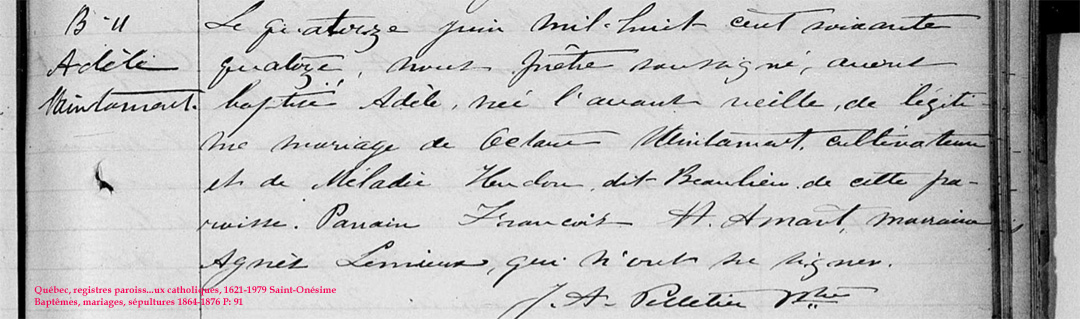 B-11
Adèle
Vaintamant.
Le quatorze juin mil-huit cent soixante
quatorze, nous prêtre soussigné, avons
baptisé Adèle, née l'avant veille, de légiti-
me mariage de Octave Uintamant, cultivateur
et de Méladie Hudon dit Beaulieu de cette pa-
roisse. Parrain François St. Amant, marraine
Agnès Lemieux, qui n'ont su signer.
J. A. Pelletier Ptre
Québec, registres paroiss...ux catholiques, 1621-1979 Saint-Onésime
Baptêmes, mariages, sépultures 1864-1876 P: 91